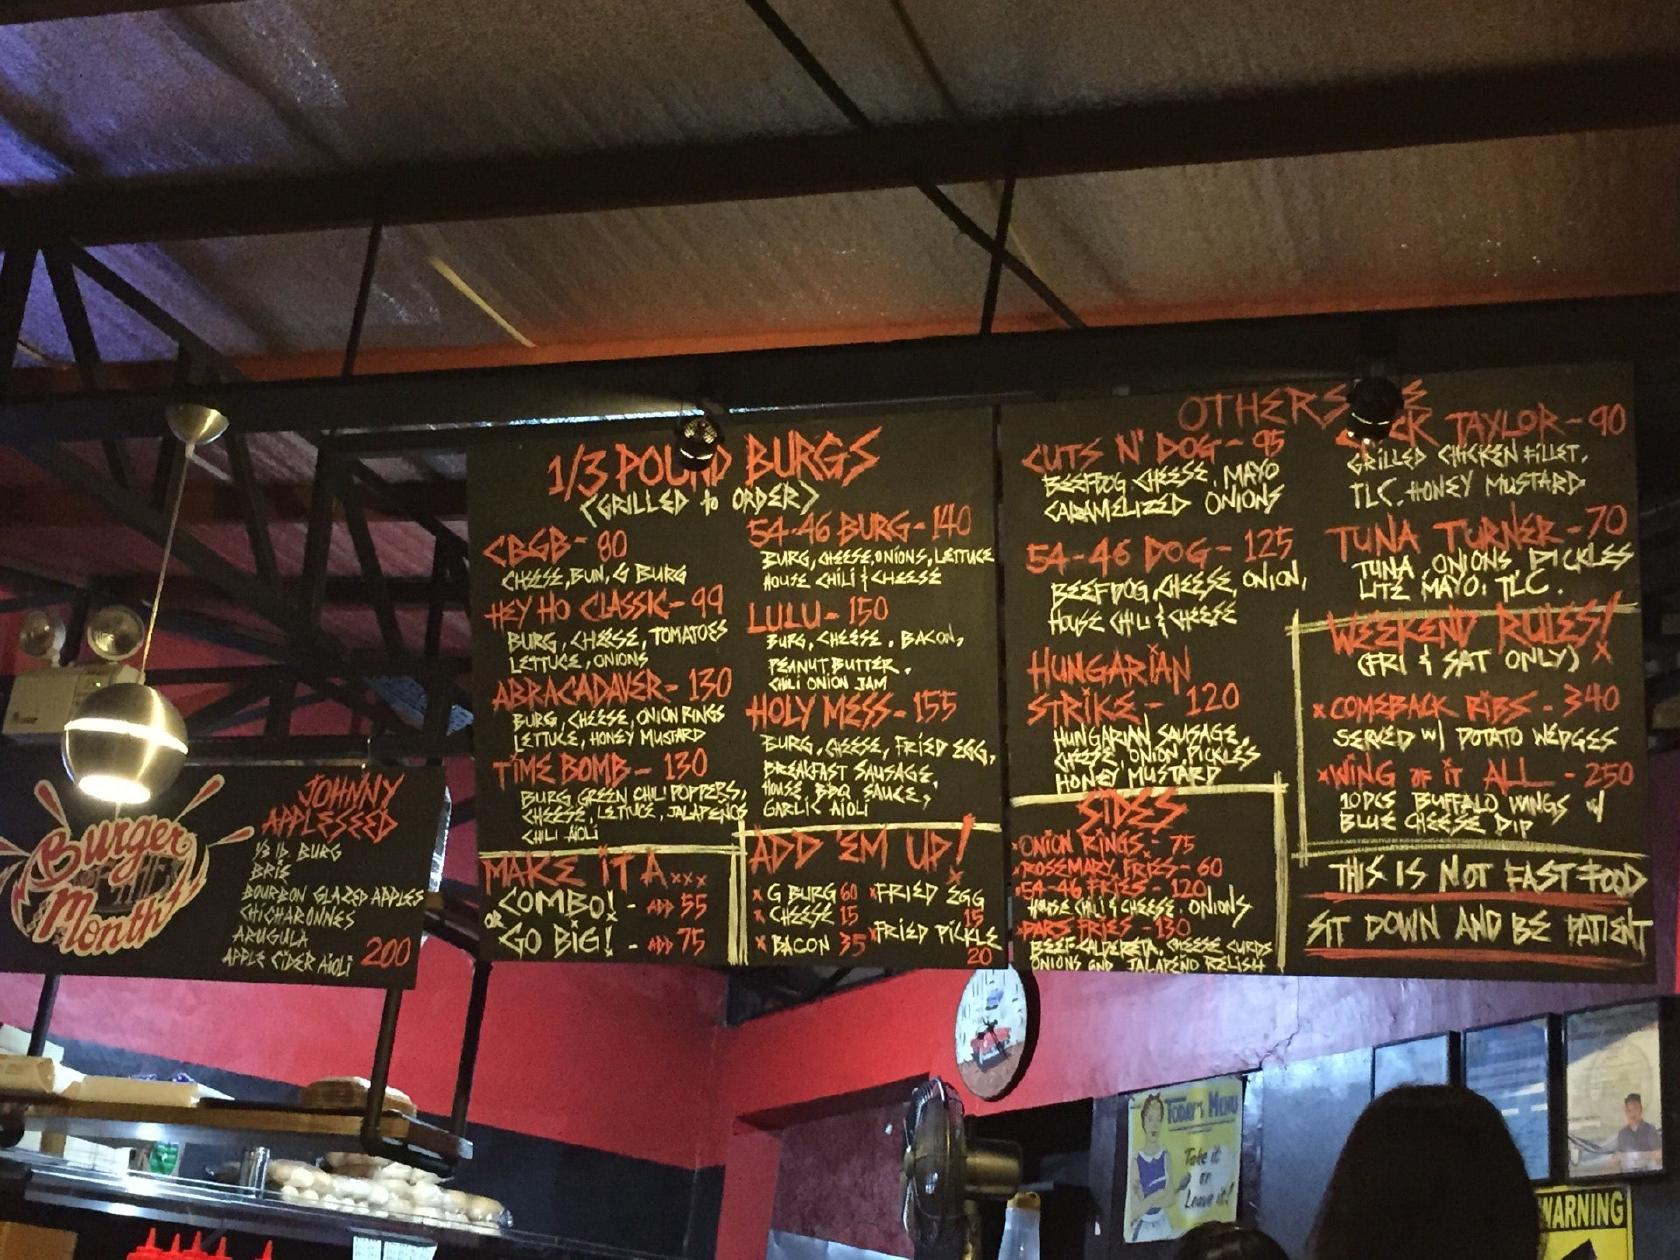 Burger
OF THE
Month
JOHNNY
APPLESEED
1/3 lb. BURG
BRIS
BOURBON GLAZED APPLES
CHICHARONNES
ARUGULA
APPLE CIDER AIOLI 200
1/3 POUND BURGS
(GRILLED to ORDER)
CBGB - 80
CHEESE, BUN, G BURG
HEY HO CLASSIC - 99
BURG, CHEESE, TOMATOES
LETTUCE, ONIONS
ABRACADAVER - 130
BURG, CHEESE, ONION RINGS
LETTUCE, HONEY MUSTARD
TIME BOMB - 130
BURG GREEN CHILI POPPERS,
CHEESE, LETTUCE, JALAPEÑOS
CHILI AIOLI
MAKE IT A xxx
COMBO! - ADD 55
OR
GO BIG! - ADD 75
54-46 BURG - 140
BURG, CHEESE, ONIONS, LETTUCE
HOUSE CHILI & CHEESE
LULU - 150
BURG, CHEESE, BACON,
PEANUT BUTTER,
CHILI ONION JAM
HOLY MESS - 155
BURG, CHEESE, FRIED EGG,
BREAKFAST SAUSAGE,
HOUSE BBQ SAUCE,
GARLIC AIOLI
ADD 'EM UP!
x G BURG 60
x CHEESE 15
x BACON 35
x FRIED EGG
15
x FRIED PICKLE
20
OTHERS
CUTS N' DOG - 95
BEEFDOG, CHEESE, MAYO
CARAMELIZED ONIONS
54-46 DOG - 125
BEEFDOG, CHEESE, ONION,
HOUSE CHILI & CHEESE
HUNGARIAN
STRIKE - 120
HUNGARIAN SAUSAGE,
CHEESE, ONION, PICKLES
HONEY MUSTARD
SIDES
x ONION RINGS - 75
x ROSEMARY FRIES - 60
x 54-46 FRIES - 120
HOUSE CHILI & CHEESE, ONIONS
x DAR'S FRIES - 130
BEEF-CALDERETA, CHEESE CURDS
ONIONS and JALAPEÑO RELISH
TAYLOR - 90
GRILLED CHICKEN FILLET,
TLC, HONEY MUSTARD
TUNA TURNER - 70
TUNA, ONIONS, PICKLES
LITE MAYO, TLC.
WEEKEND RULES!
(FRI & SAT ONLY) x
x COMEBACK RIBS - 340
SERVED w/ POTATO WEDGES
x WING OF IT ALL - 250
10PCS BUFFALO WINGS w/
BLUE CHEESE DIP
THIS IS NOT FAST FOOD
SIT DOWN AND BE PATIENT
TODAY'S MENU
Take it
or
Leave it!
WARNING